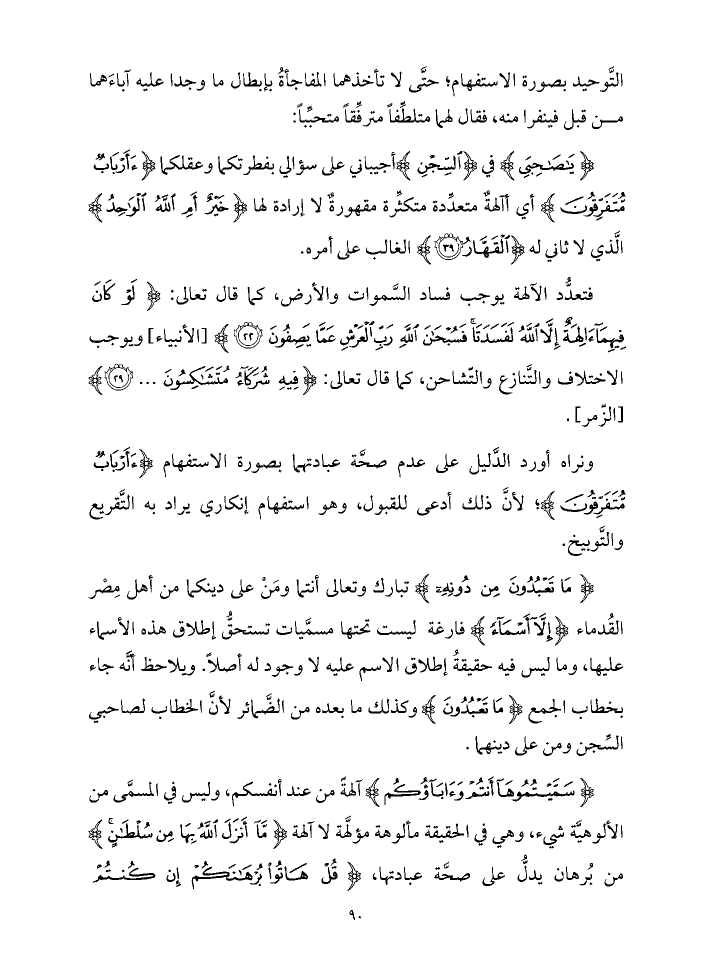 التَّوحيد بصورة الاستفهام؛ حتَّى لا تأخذهما المفاجأةُ بإبطال ما وجدا عليه آباءَهما
مـــن قبل فينفرا منه، فقال لهما متلطِّفاً مترفِّقاً متحبِّباً:
﴿يَٰصَٰحِبَيِ﴾ في ﴿ٱلسِّجْنِ﴾أجيباني على سؤالي بفطرتكما وعقلكما ﴿ءَأَرْبَابٌ
مُّتَفَرِّقُونَ﴾ أي أآلهةٌ متعدِّدة متكثِّرة مقهورةٌ لا إرادة لها ﴿خَيْرٌ أَمِ ٱللَّهُ ٱلْوَٰحِدُ﴾
الَّذي لا ثاني له ﴿ٱلْقَهَّارُ ٣٩﴾ الغالب على أمره.
فتعدُّد الآلهة يوجب فساد السَّموات والأرض، كما قال تعالى: ﴿لَوْ كَانَ
فِيهِمَآ ءَالِهَةٌ إِلَّا ٱللَّهُ لَفَسَدَتَا ۚ فَسُبْحَٰنَ ٱللَّهِ رَبِّ ٱلْعَرْشِ عَمَّا يَصِفُونَ ٢٢﴾ [الأنبياء] ويوجب
الاختلاف والتَّنازع والتَّشاحن، كما قال تعالى: ﴿فِيهِ شُرَكَآءُ مُتَشَٰكِسُونَ ... ٢٩﴾
[الزّمر] .
ونراه أورد الدَّليل على عدم صحَّة عبادتهما بصورة الاستفهام ﴿ءَأَرْبَابٌ
مُّتَفَرِّقُونَ﴾؛ لأنَّ ذلك أدعى للقبول، وهو استفهام إنكاري يراد به التَّقريع
والتَّوبيخ.
﴿مَا تَعْبُدُونَ مِن دُونِهِۦٓ﴾ تبارك وتعالى أنتما ومَنْ على دينكما من أهل مِصْر
القُدماء ﴿إِلَّآ أَسْمَآءً﴾ فارغة ليست تحتها مسمَّيات تستحقُّ إطلاق هذه الأسماء
عليها، وما ليس فيه حقيقةُ إطلاق الاسم عليه لا وجود له أصلاً. ويلاحظ أنَّه جاء
بخطاب الجمع ﴿مَا تَعْبُدُونَ﴾ وكذلك ما بعده من الضَّمائر لأنَّ الخطاب لصاحبي
السِّجن ومن على دينهما .
﴿سَمَّيْتُمُوهَآ أَنتُمْ وَءَابَآؤُكُم﴾ آلهةً من عند أنفسكم، وليس في المسمَّى من
الألوهيَّة شيء، وهي في الحقيقة مألوهة مؤلَّهة لا آلهة ﴿مَّآ أَنزَلَ ٱللَّهُ بِهَا مِن سُلْطَٰنٍ ۚ﴾
من بُرهان يدلُّ على صحَّة عبادتها، ﴿قُلْ هَاتُوا۟ بُرْهَٰنَكُمْ إِن كُنتُمْ
٩٠